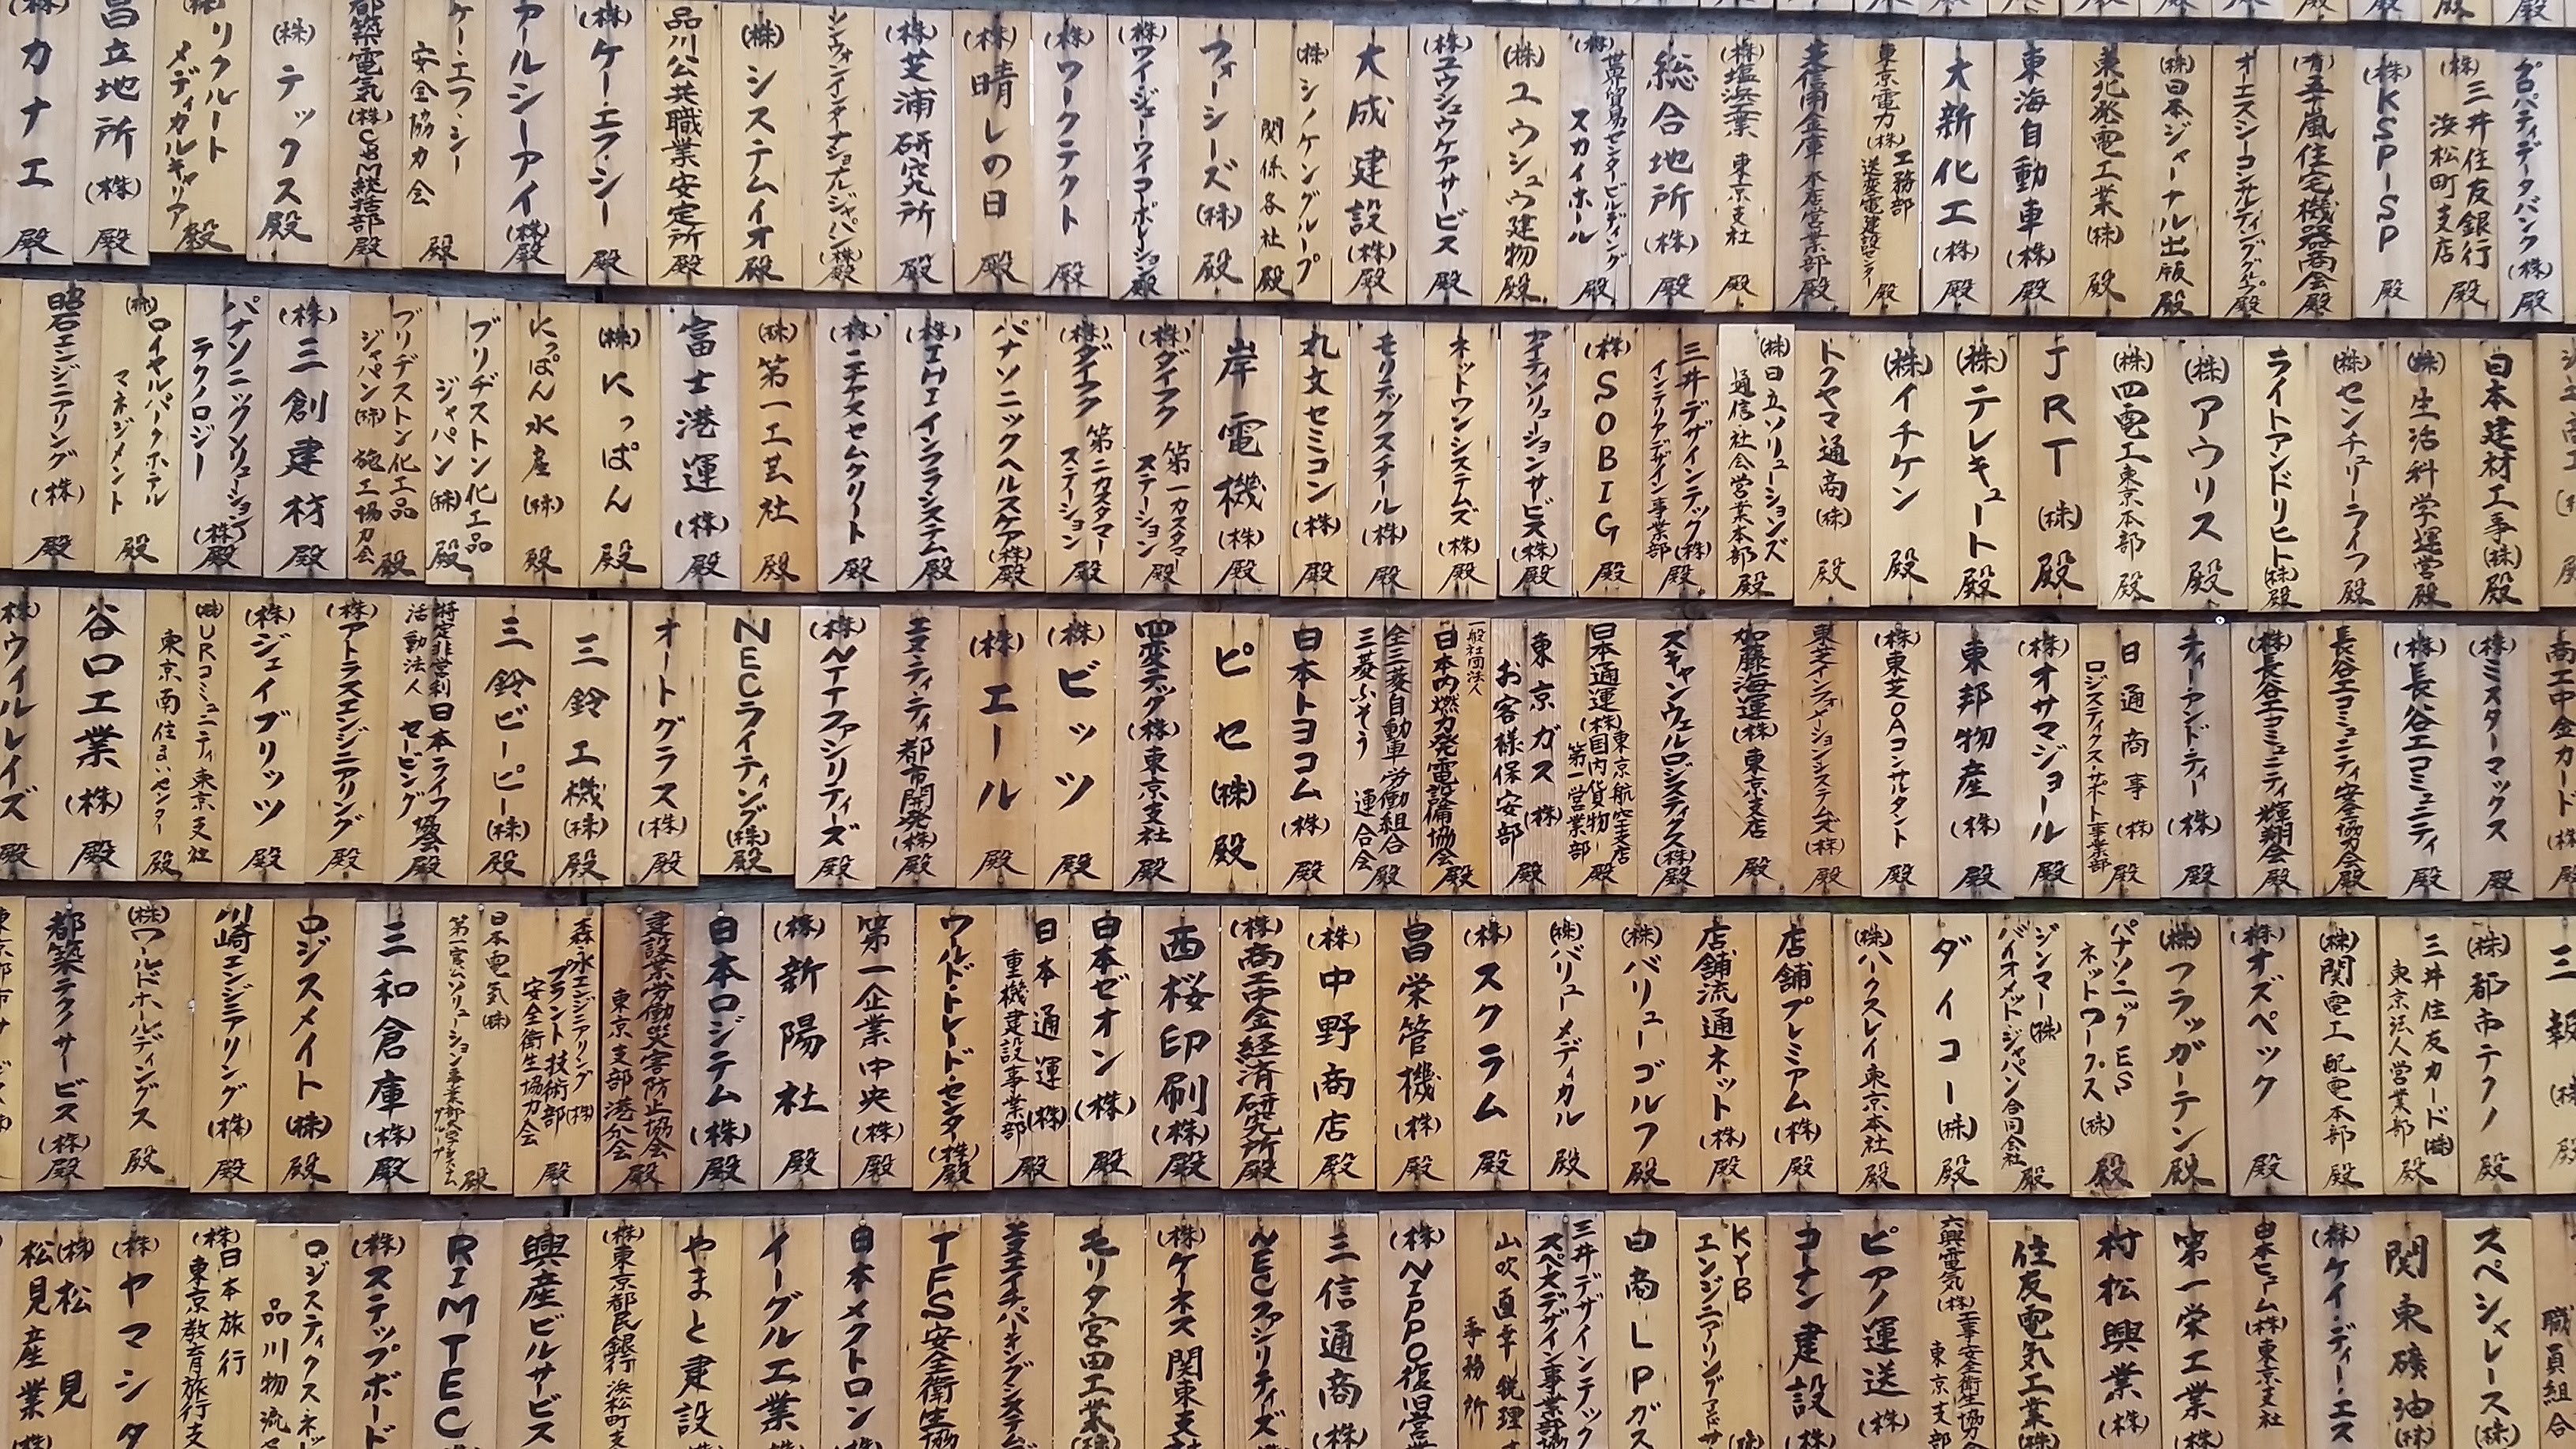 (株)カナエ 殿
昌立地所(株) 殿
(株)リクルート
メディカルキャリア 殿
(株)テックス 殿
都築電気(株)CSM統括部 殿
ケー・エフ・シー
安全協力会 殿
アールシーアイ(株) 殿
(株)ケー・エフ・シー 殿
品川公共職業安定所 殿
(株)システムイオ 殿
シンウォンインターナショナルジャパン(株) 殿
(株)芝浦研究所 殿
(株)晴レの日 殿
(株)ワークテクト 殿
(株)ワイ・ジェー・ワイコーポレーション 殿
フォーシーズ(株) 殿
(株)シノケングループ
関係各社 殿
大成建設(株) 殿
(株)ユウシュウケアサービス 殿
(株)ユウシュウ建物 殿
(株)世界貿易センタービルディング
スカイホール 殿
総合地所(株) 殿
(株)塩浜工業 東京支社 殿
芝信用金庫 本店営業部 殿
東京電力(株)工務部
送変電建設センター 殿
大新化工(株) 殿
東海自動車(株) 殿
東北発電工業(株) 殿
(株)日本ジャーナル出版 殿
オーエスシーコンサルティンググループ 殿
(有)五十嵐住宅機器商会 殿
(株)KSP-SP 殿
(株)三井住友銀行
浜松町支店 殿
プロパティデータバンク(株) 殿
昭石エンジニアリング(株) 殿
(株)ロイヤルパークホテル
マネジメント 殿
パナソニックソリューション
テクノロジー(株) 殿
(株)三創建材 殿
ブリヂストン化工品
ジャパン(株)施工協力会 殿
ブリヂストン化工品
ジャパン(株) 殿
にっぽん水産(株) 殿
(株)にっぽん 殿
富士港運(株) 殿
(株)第一工芸社 殿
(株)ニチアスセムクリート 殿
(株)エヌエイインフラシステム 殿
パナソニックヘルスケア(株) 殿
(株)ダイフク 第二カスタマー
ステーション 殿
(株)ダイフク 第一カスタマー
ステーション 殿
岸電機(株) 殿
丸文セミコン(株) 殿
モリテックスチール(株) 殿
ネットワンシステムズ(株) 殿
アイティソリューションサービス(株) 殿
(株)SOBIG 殿
三井デザインテック(株)
インテリアデザイン事業部 殿
(株)日立ソリューションズ
通信・社会営業本部 殿
トクヤマ通商(株) 殿
(株)イチケン 殿
(株)テレキュート 殿
JRT(株) 殿
(株)四電工東京本部 殿
(株)アウリス 殿
ライトアンドリヒト(株) 殿
(株)センチュリーライフ 殿
(株)生活科学運営 殿
日本建材工事(株) 殿
(株)ウィルレイズ 殿
谷口工業(株) 殿
(株)URコミュニティ東京支社
東京南住まいセンター 殿
(株)ジェイブリッツ 殿
(株)アトラスエンジニアリング 殿
特定非営利活動法人 日本ライフセービング協会 殿
三鈴ビーピー(株) 殿
三鈴工機(株) 殿
オートグラス(株) 殿
NECライティング(株) 殿
(株)NTTファシリティーズ 殿
エヌティティ都市開発(株) 殿
(株)エール 殿
(株)ビッツ 殿
四変テック(株)東京支社 殿
ピセ(株) 殿
日本トヨコム(株) 殿
全三菱自動車・三菱ふそう
労働組合連合会 殿
一般社団法人
日本内燃力発電設備協会 殿
東京ガス(株)
お客様保安部 殿
日本通運(株)東京航空支店
国内貨物第一営業部 殿
スキャンウェルロジスティクス(株) 殿
加藤海運(株)東京支店 殿
東芝インフォメーションシステムズ(株) 殿
(株)東芝OAコンサルタント 殿
東邦物産(株) 殿
(株)オサマジョール 殿
日通商事(株)
ロジスティクス・サポート事業部 殿
ティーアンドティー(株) 殿
(株)長谷工コミュニティ輝翔会 殿
長谷工コミュニティ安全協力会 殿
(株)長谷工コミュニティ 殿
(株)ミスターマックス 殿
商工中金カード(株)
都築テクノサービス(株) 殿
(株)ワールドホールディングス 殿
川崎エンジニアリング(株) 殿
ロジスメイト(株) 殿
三和倉庫(株) 殿
日本電気(株)
第一官公ソリューション事業部 殿
森永エンジニアリング(株)
プラント技術部
安全衛生協力会 殿
建設業労働災害防止協会
東京支部港分会 殿
日本ロジテム(株) 殿
(株)新陽社 殿
第一企業中央(株) 殿
ワールド・トレード・センタ(株) 殿
日本通運(株)
重機建設事業部 殿
日本ゼオン(株) 殿
西桜印刷(株) 殿
(株)商工中金経済研究所 殿
(株)中野商店 殿
昌栄管機(株) 殿
(株)スクラム 殿
(株)バリューメディカル 殿
(株)バリューゴルフ 殿
店舗流通ネット(株) 殿
店舗プレミアム(株) 殿
(株)ハークスレイ東京本社 殿
ダイコー(株) 殿
ジンマー(株)
バイオメットジャパン合同会社 殿
パナソニックES
ネットワークス(株) 殿
(株)フラッガーテン 殿
(株)オズペック 殿
(株)関電工 配電本部 殿
三井住友カード(株)
東京法人営業部 殿
(株)都市テクノ 殿
三報
(株)松見
松見産業(株)
(株)ヤマシタ
(株)日本旅行
東京教育旅行支
ロジスティクスネッ
品川物流
(株)ステップボード
RIMTEC
興産ビルサービス
(株)東京都民銀行 浜松町支
やまと建設
イーグル工業
日本メクトロン
TFS安全衛生協
エヌエイチパーキングシステム
モリタ宮田工業(株)
(株)ケーネス関東支
NECファシリティズ
三信通商(株)
(株)NIPPO復旧営業
山吹直幸税理
事務所
三井デザインテック
スペースデザイン事業部協
白商LPガス
KYB
エンジニアリングアンドサ
コーナン建設(株)
ピアノ運送(株)
六興電気(株)工事安全衛生協力会
東京支部
住友電気工業(株)
村松興業(株)
第一栄工業(株)
日本ヒューム(株)東京支社
(株)ケイ・ディー・エス
関東礦油(株)
スペシメレース(株)
職員組合